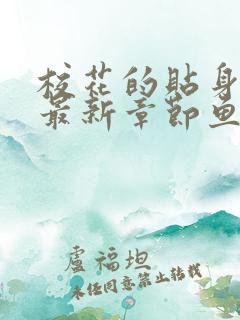 校花的贴身
最新章节鱼
盧福坦
未经同意禁止转载